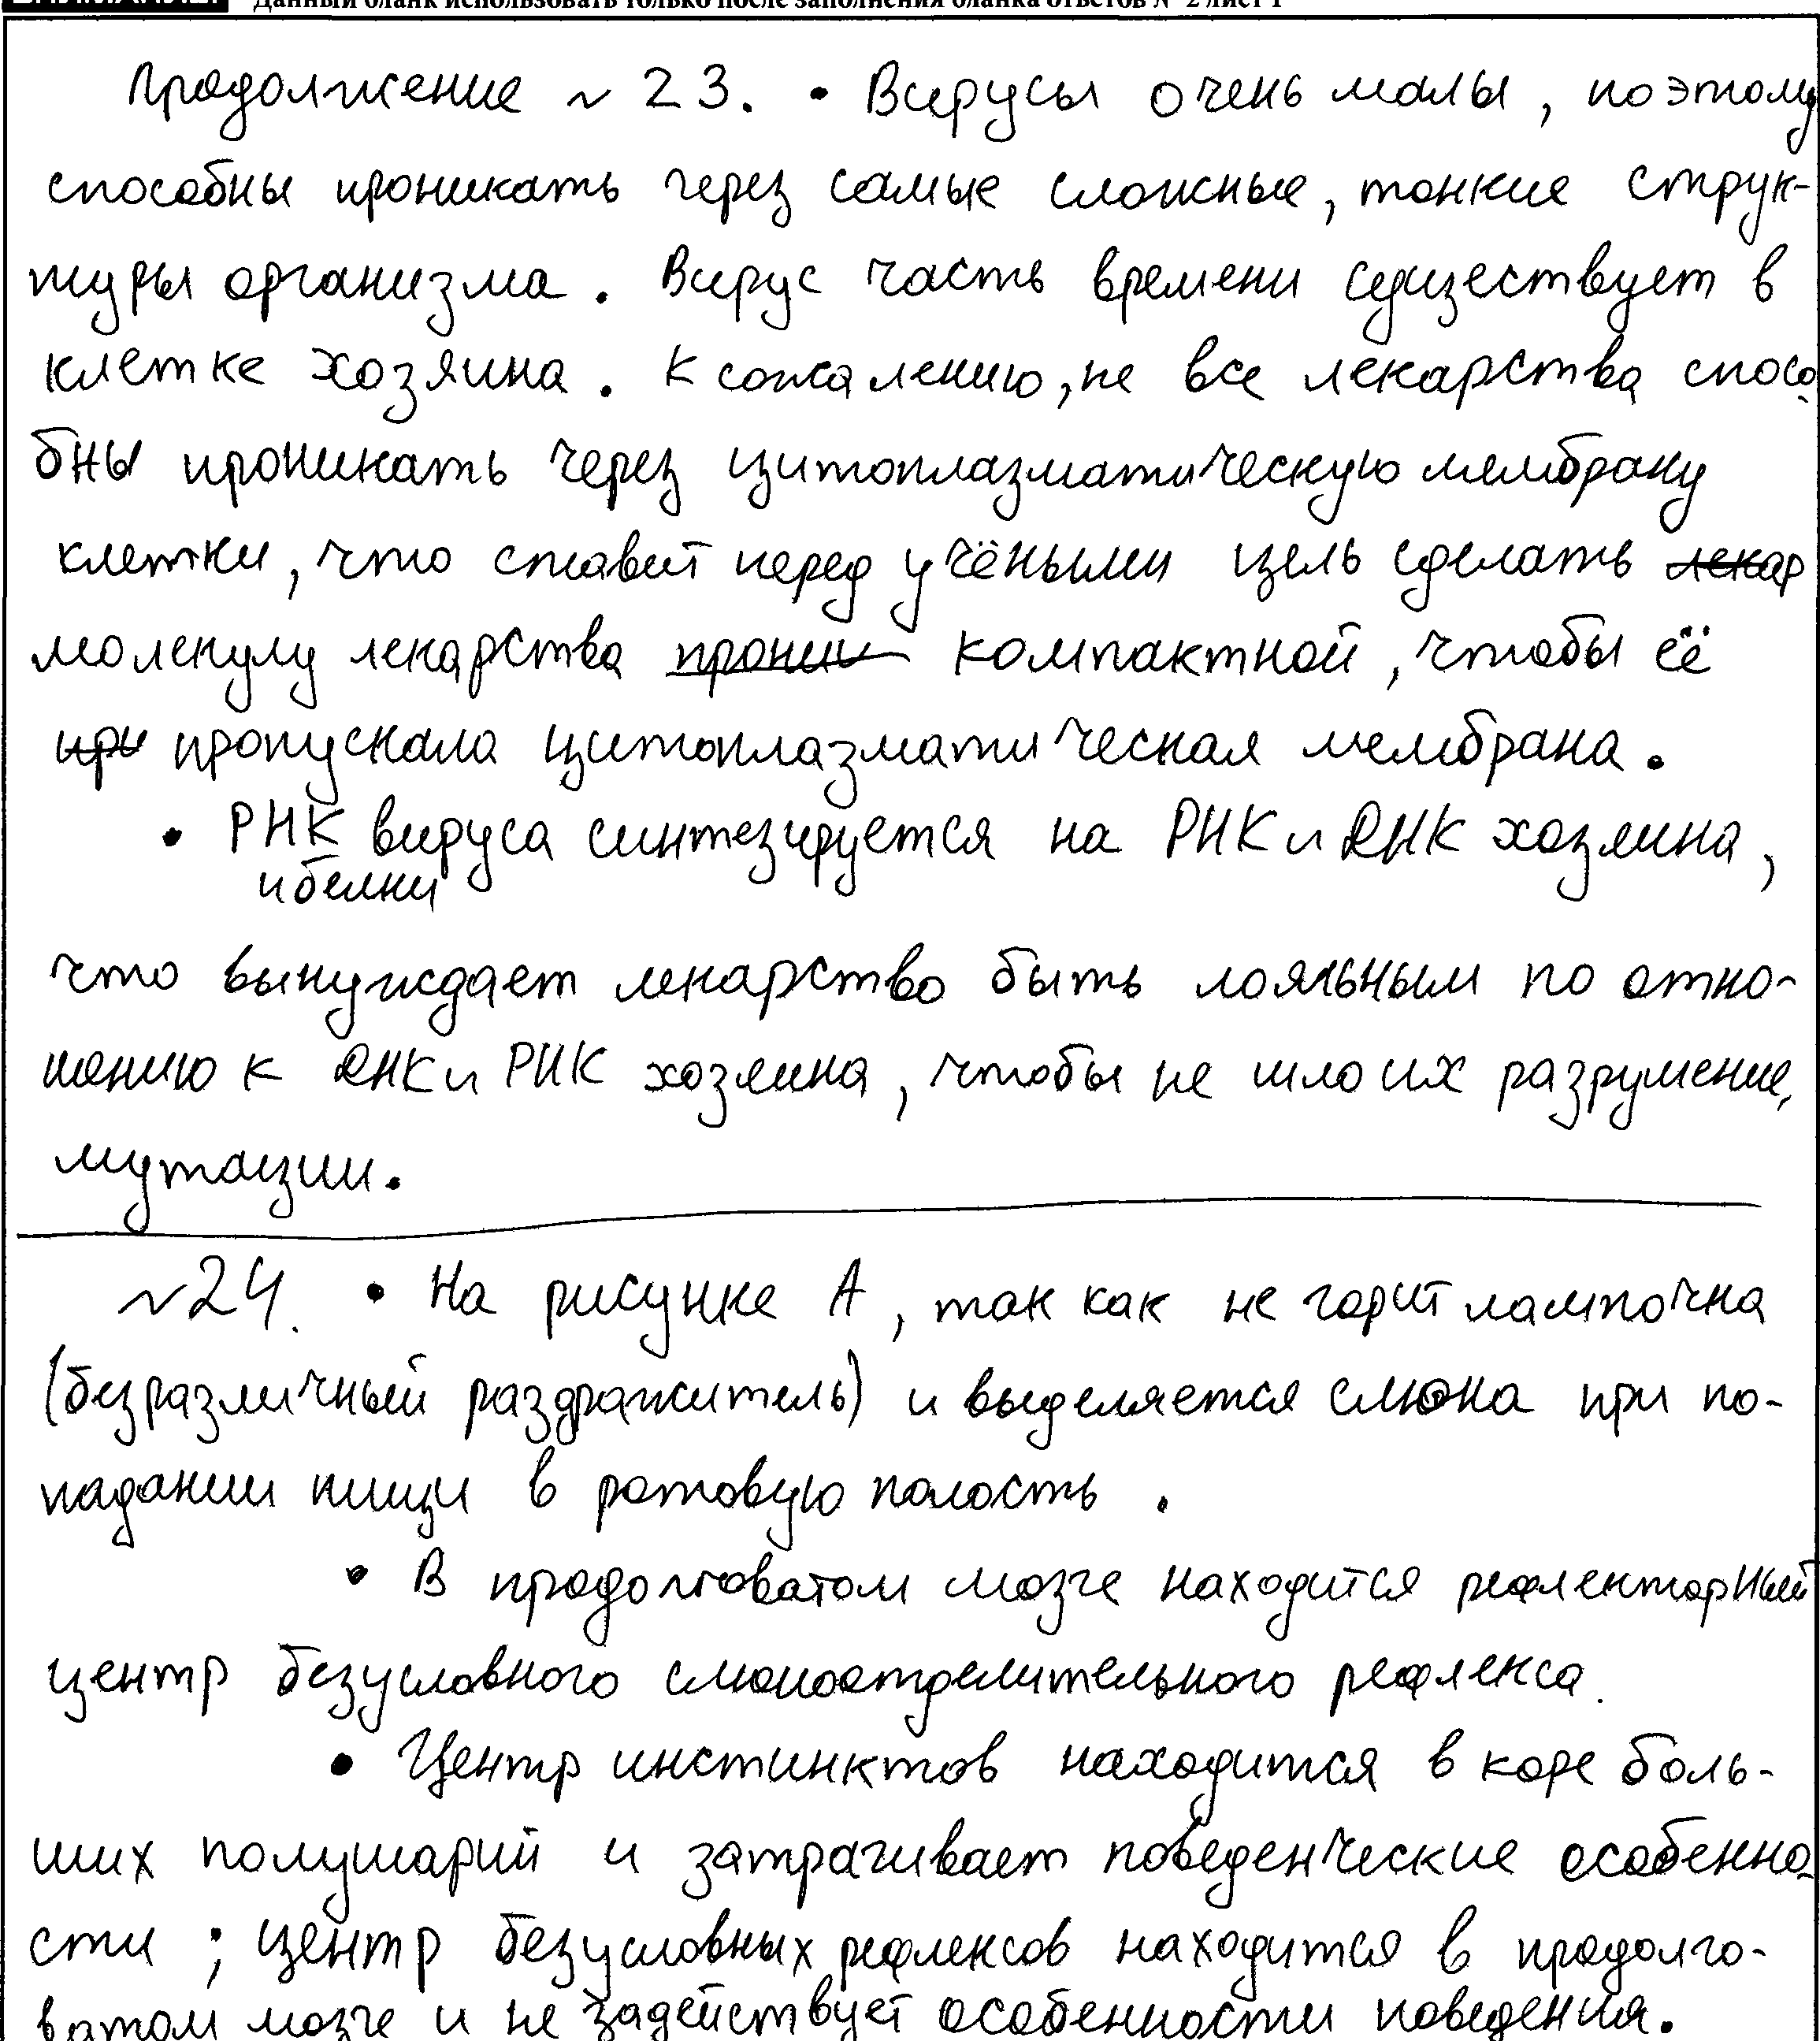 Данный бланк использовать только после заполнения бланка ответов № 2 лист 1
Продолжение ~ 23. • Вирусы очень малы, поэтому
способны проникать через самые сложные, тонкие струк-
туры организма. Вирус часть времени существует в
клетке хозяина. К сожалению, не все лекарства спосо-
бны проникать через цитоплазматическую мембрану
клетки, что ставит перед учёными цель сделать лекар
молекулу лекарства проник компактной, чтобы её
при пропускала цитоплазматическая мембрана.
• РНК вируса синтезируется на РНК и ДНК хозяина,
и белки
что вынуждает лекарство быть лояльным по отно-
шению к ДНК и РНК хозяина, чтобы не шло их разрушение,
мутации.
~24. • На рисунке А, так как не горит лампочка
(безразличный раздражитель) и выделяется слюна при по-
падании пищи в ротовую полость.
• В продолговатом мозге находится рефлекторный
центр безусловного слюноотделительного рефлекса.
• Центр инстинктов находится в коре боль-
ших полушарий и затрагивает поведенческие особенно-
сти ; центр безусловных рефлексов находится в продолго-
ватом мозге и не задействует особенности поведения.